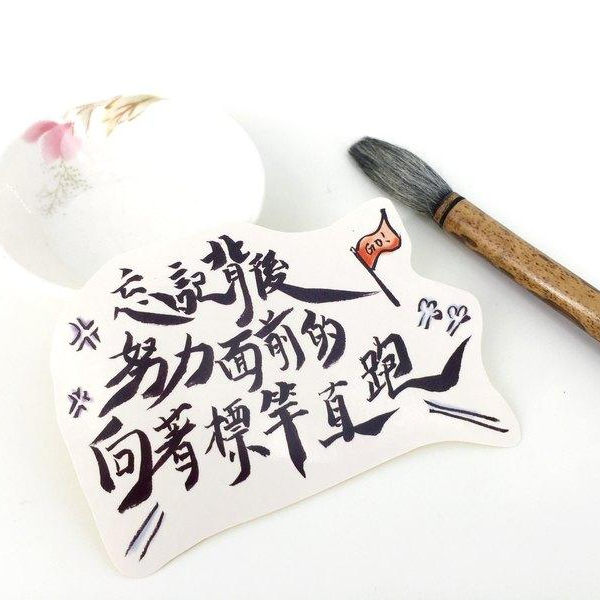 忘記背後
GO!
努力面前的
向著標竿直跑